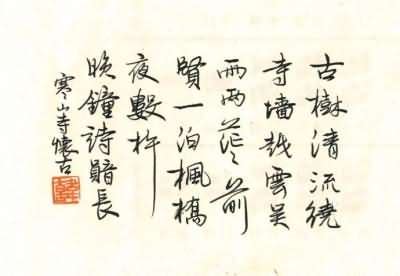 古樹清流繞
寺墻越雲吳
雨兩茫〻前
賢一泊楓橋
夜數杵
晚鐘詩韻長
寒山寺懷古